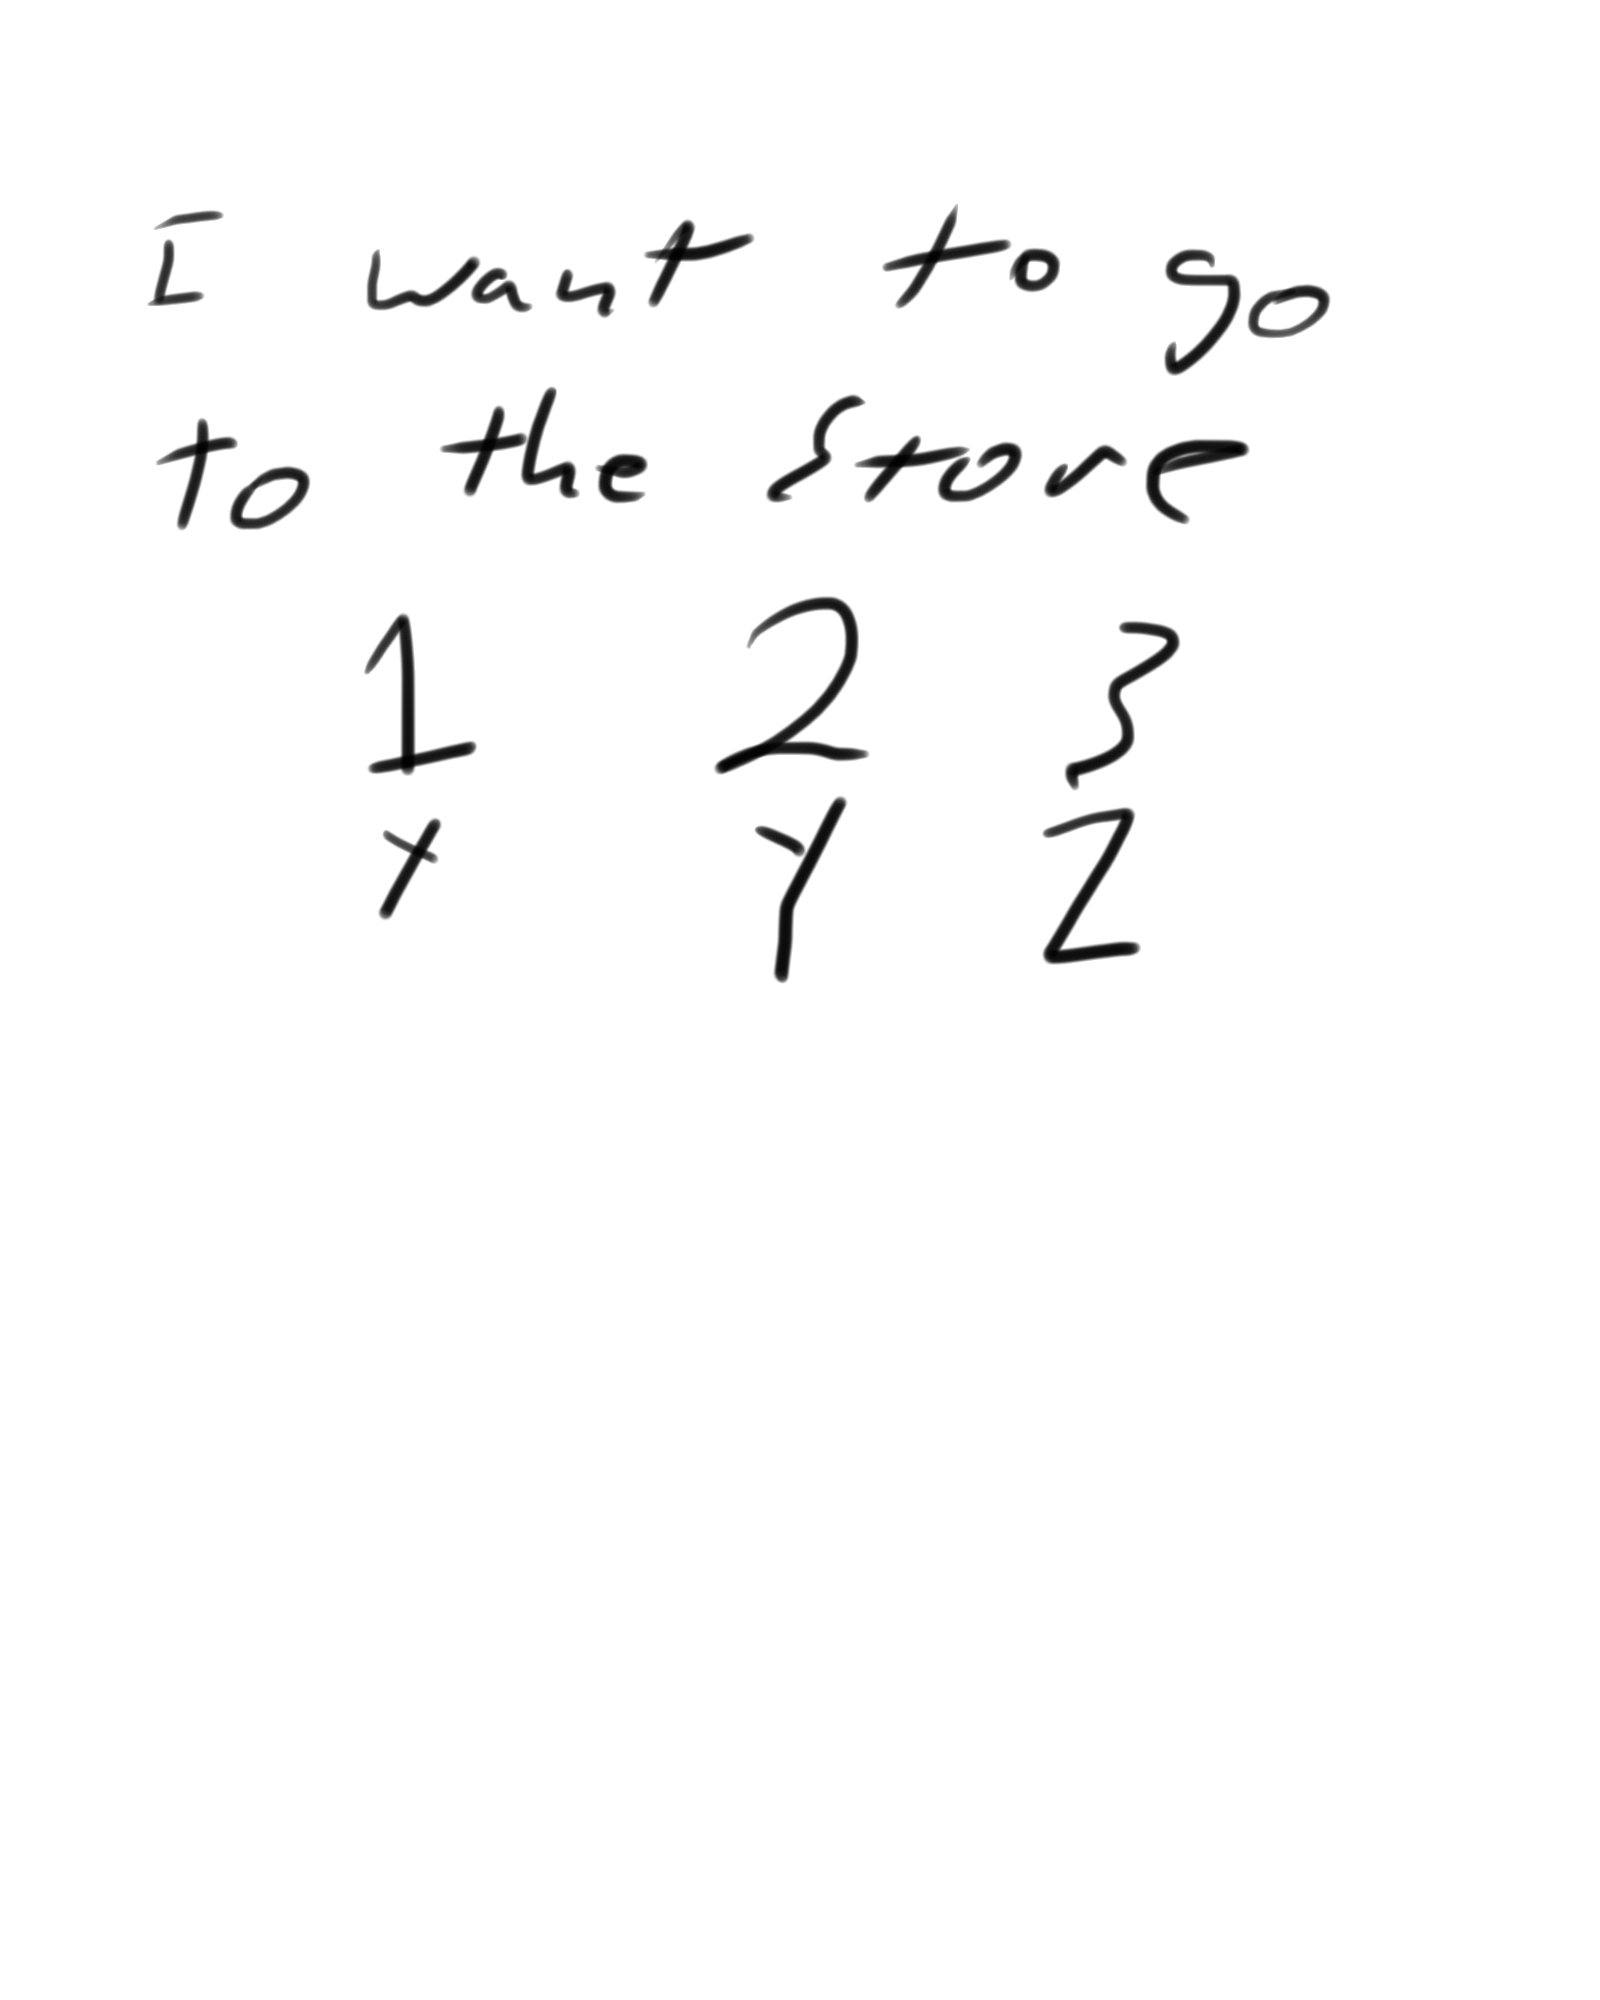 I want to go
to the store
1 2 3
X Y Z